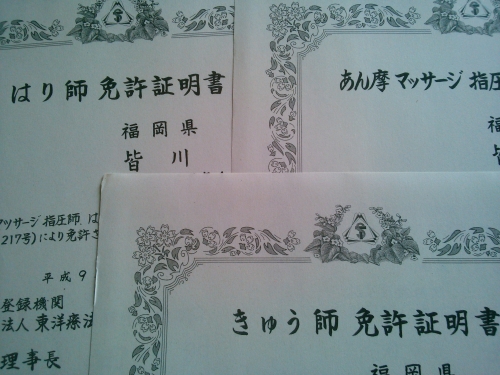 はり師 免許証明書
福岡県
皆川
マッサージ 指圧師 は
217号)により免許さ
平成9
登録機関
法人 東洋療法
理事長
あん摩 マッサージ 指圧
福岡県
皆
きゅう師 免許証明書
福岡県